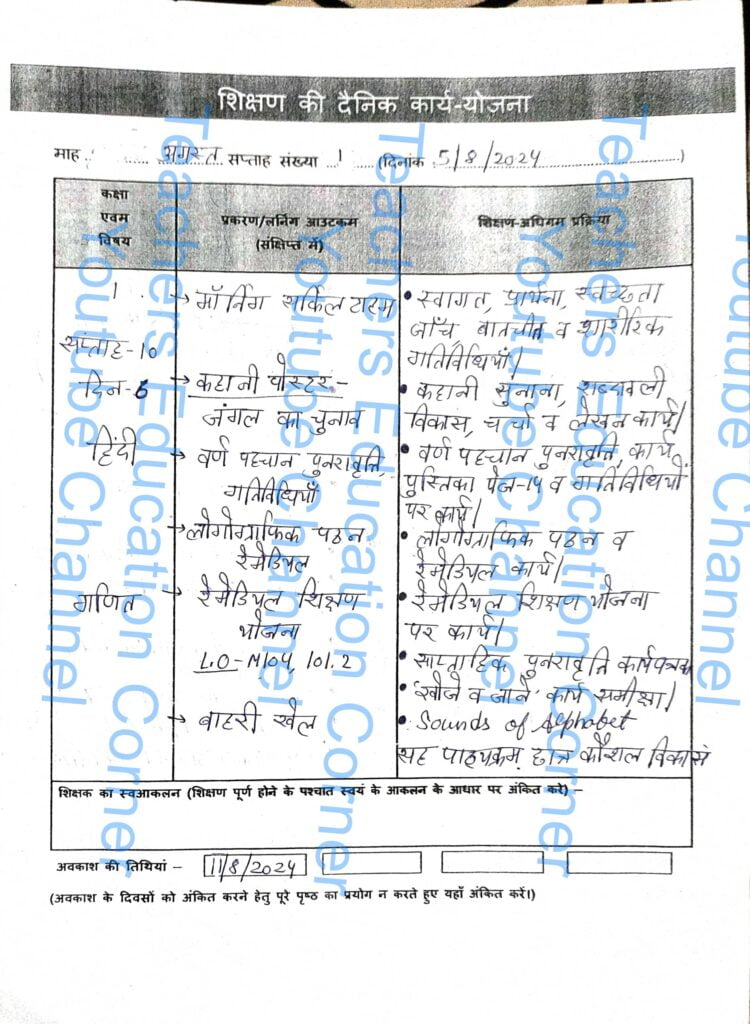 शिक्षण की दैनिक कार्य-योजना
माह : अगस्त सप्ताह संख्या 1 (दिनांक 5/8/2024)
कक्षा एवम विषय
प्रकरण/लर्निंग आउटकम (संक्षिप्त में)
शिक्षण-अधिगम प्रक्रिया
1
सप्ताह-10
दिन-6
हिंदी
गणित
→ मॉर्निंग सर्किल टाइम
→ कहानी पोस्टर -
जंगल का चुनाव
→ वर्ण पहचान पुनरावृत्ति,
गतिविधियाँ
→ लोगोग्राफिक पठन
रेमेडियल
→ रेमेडियल शिक्षण
योजना
L.O-M104, 101.2
→ बाहरी खेल
• स्वागत, प्रार्थना, स्वच्छता
जाँच, बातचीत व शारीरिक
गतिविधियाँ।
• कहानी सुनाना, शब्दावली
विकास, चर्चा व लेखन कार्य।
• वर्ण पहचान पुनरावृत्ति, कार्य
पुस्तिका पेज-14 व गतिविधियों
पर कार्य।
• लोगोग्राफिक पठन व
रेमेडियल कार्य।
• रेमेडियल शिक्षण योजना
पर कार्य।
• साप्ताहिक पुनरावृत्ति कार्यपत्रक
• 'खोजे व जाने' कार्य समीक्षा।
• Sounds of Alphabet
सह पाठ्यक्रम, छात्र कौशल विकास
शिक्षक का स्वआकलन (शिक्षण पूर्ण होने के पश्चात स्वयं के आकलन के आधार पर अंकित करे) –
अवकाश की तिथियां – 11/8/2024
(अवकाश के दिवसों को अंकित करने हेतु पूरे पृष्ठ का प्रयोग न करते हुए यहाँ अंकित करें।)
Teachers Education Corner
Youtube Channel
Teachers Education Corner
Youtube Channel
Teachers Education Corner
Youtube Channel